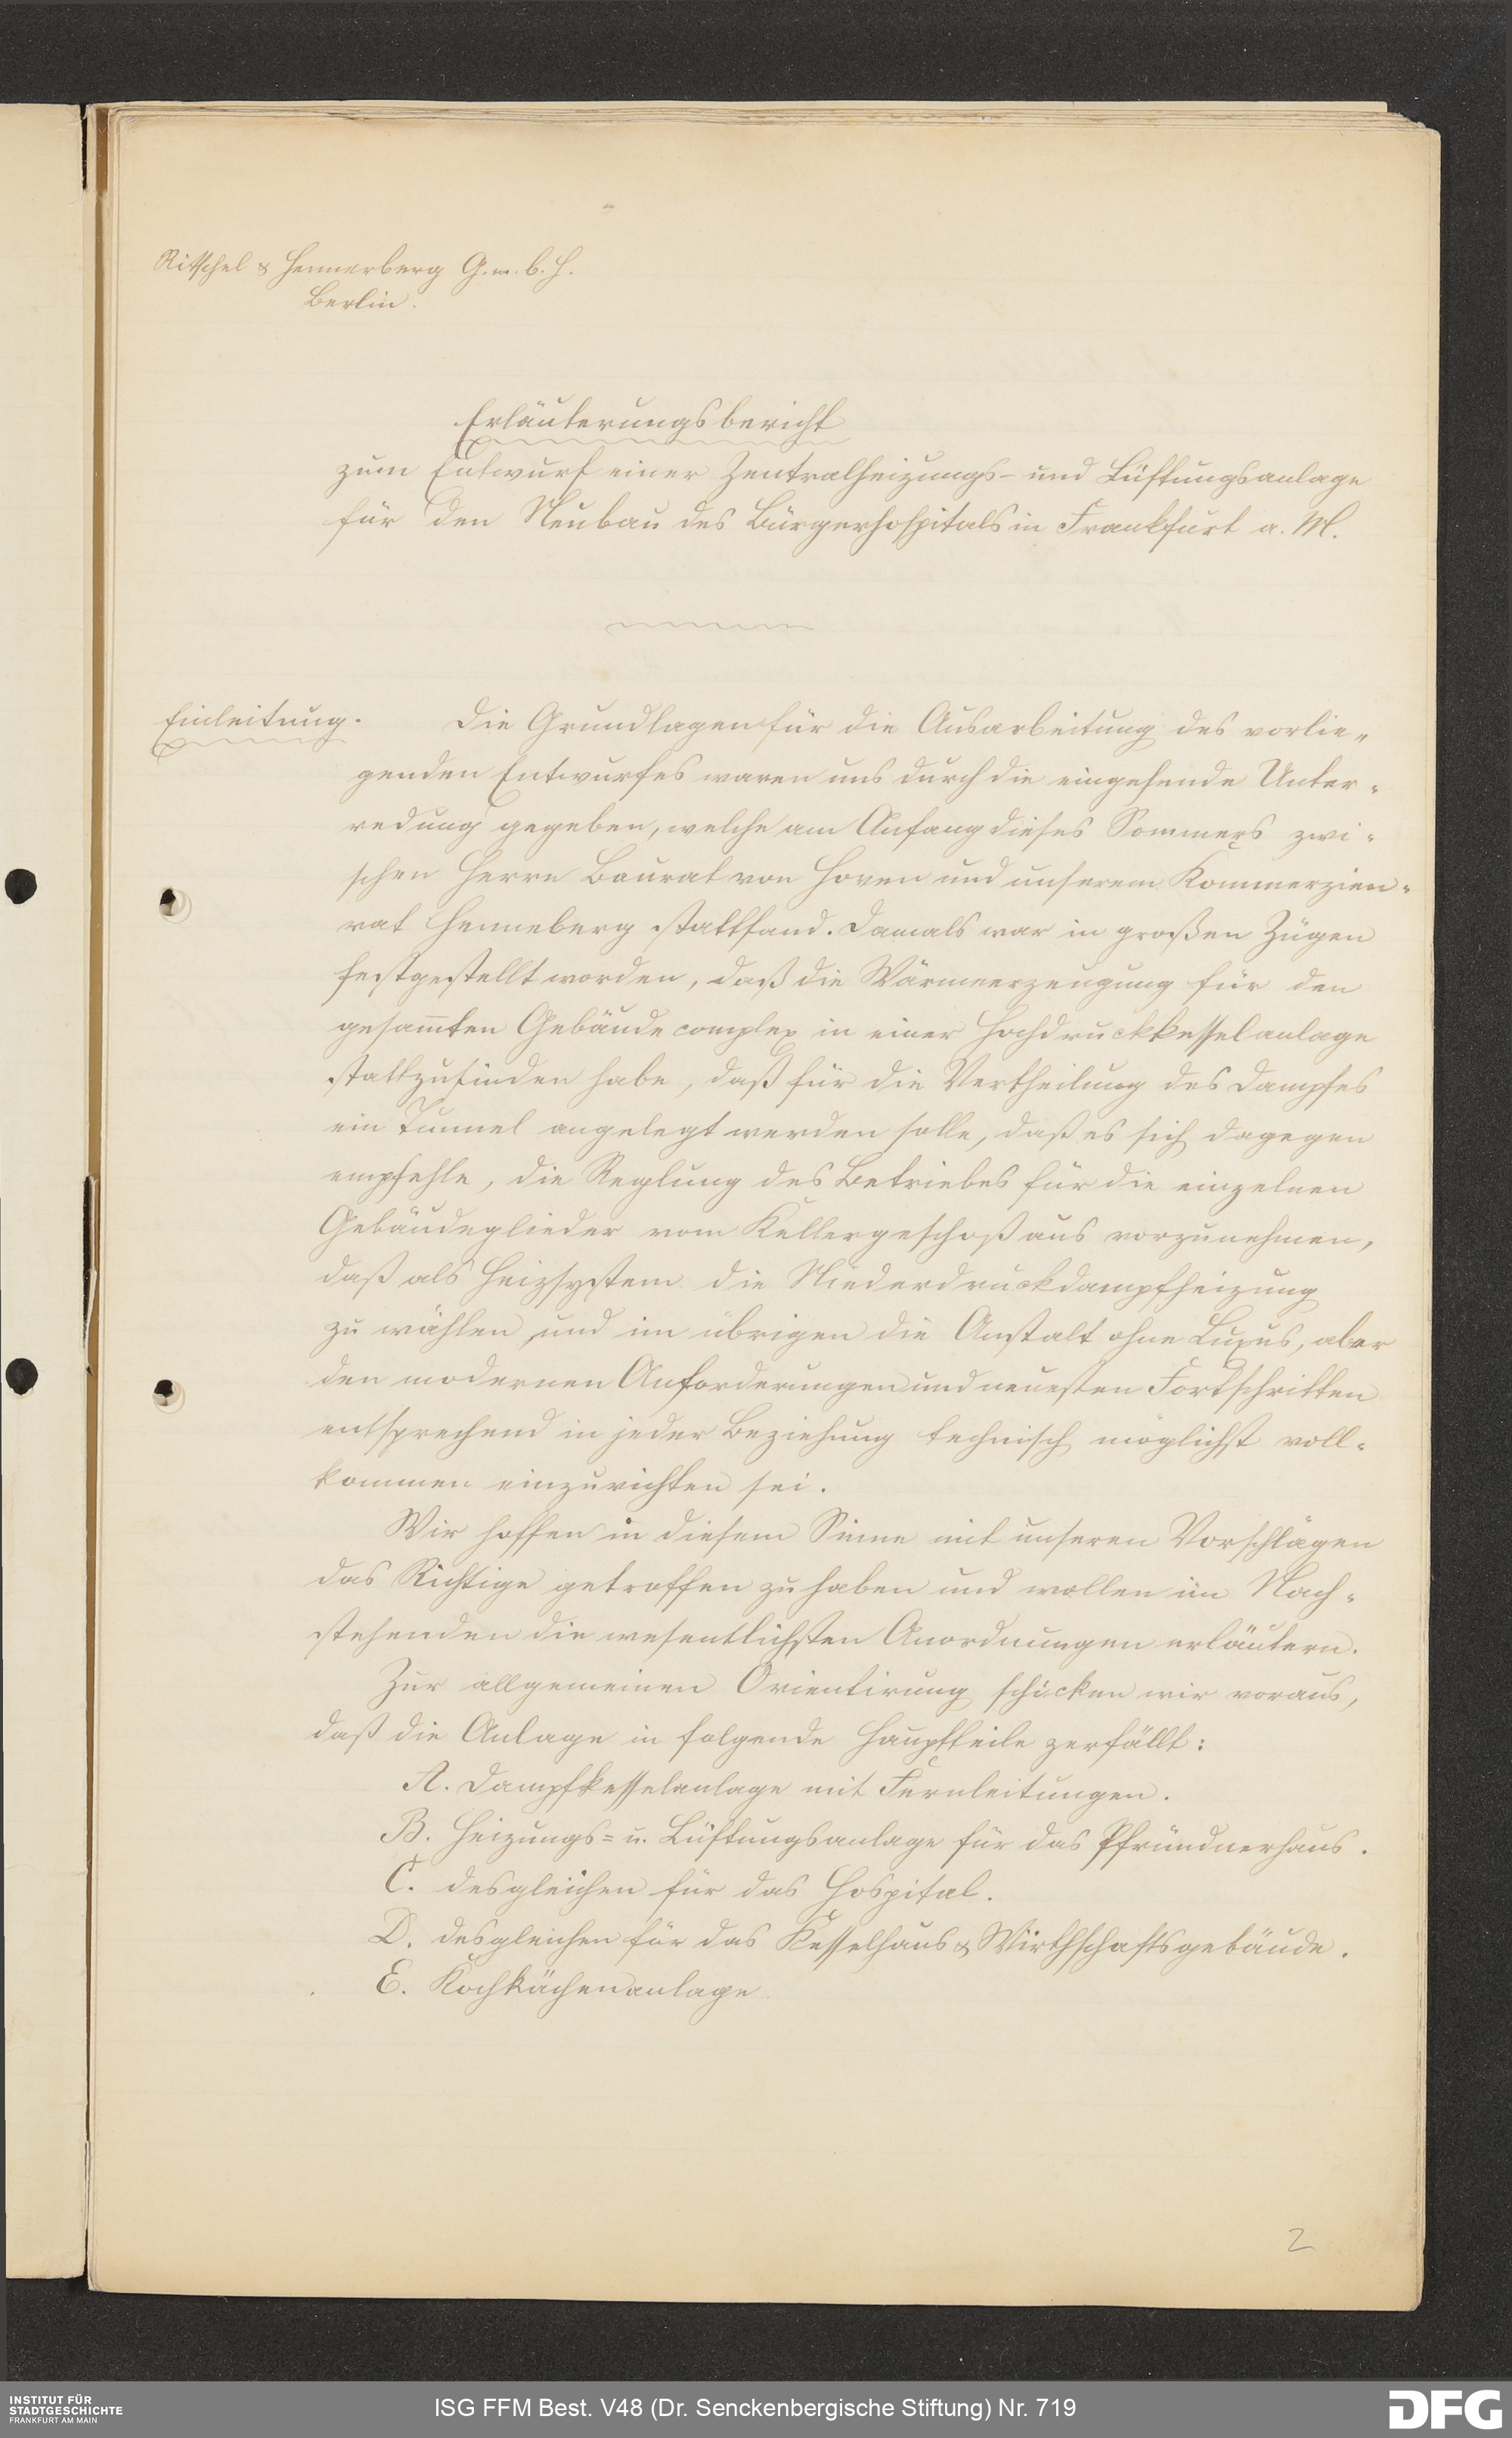 Ritschel & Hennerberg G.m.b.H.
Berlin.
Erläuterungsbericht
zum Entwurf einer Zentralheizungs- und Lüftungsanlage
für den Neubau des Bürgerhospitals in Frankfurt a. M.
Einleitung.
Die Grundlagen für die Ausarbeitung des vorlie-
genden Entwurfes waren uns durch die eingehende Unter-
redung gegeben, welche am Anfang dieses Sommers zwi-
schen Herrn Baurat von Hoven und unserem Kommerzien-
rat Henneberg stattfand. Damals war in großen Zügen
festgestellt worden, daß die Wärmeerzeugung für den
gesam̄ten Gebäudecomplex in einer Hochdruckkesselanlage
stattzufinden habe, daß für die Vertheilung des Dampfes
ein Tunnel angelegt werden solle, daß es sich dagegen
empfehle, die Reglung des Betriebes für die einzelnen
Gebäudeglieder vom Kellergeschoß aus vorzunehmen,
daß als Heizsystem die Niederdruckdampfheizung
zu wählen und im übrigen die Anstalt ohne Luxus, aber
den modernen Anforderungen und neuesten Fortschritten
entsprechend in jeder Beziehung technisch möglichst voll-
kommen einzurichten sei.
Wir hoffen in diesem Sinne mit unseren Vorschlägen
das Richtige getroffen zu haben und wollen im Nach-
stehenden die wesentlichsten Anordnungen erläutern.
Zur allgemeinen Orientirung schicken wir voraus,
daß die Anlage in folgende Hauptteile zerfällt:
A. Dampfkesselanlage mit Fernleitungen.
B. Heizungs= u. Lüftungsanlage für das Pfründnerhaus.
C. desgleichen für das Hospital.
D. desgleichen für das Kesselhaus & Wirthschaftsgebäude.
E. Kochküchenanlage.
2
INSTITUT FÜR
STADTGESCHICHTE
FRANKFURT AM MAIN
ISG FFM Best. V48 (Dr. Senckenbergische Stiftung) Nr. 719
DFG